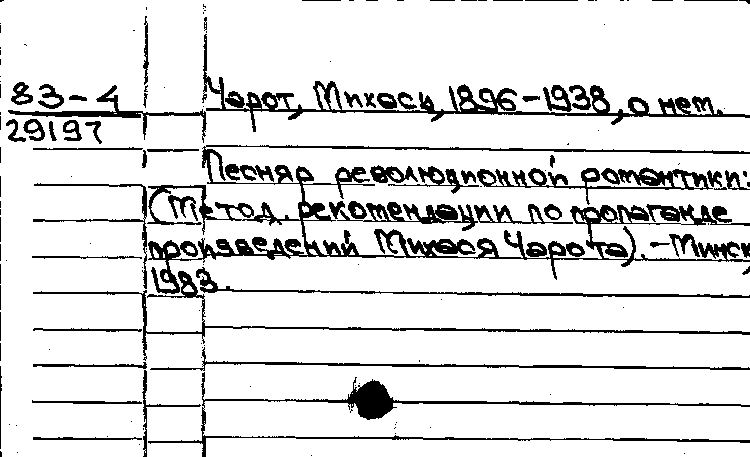 83-4
29197
Чарот, Михась, 1896-1938, о нем.
Песняр революционной романтики:
(Метод. рекомендации по пропаганде
произведений Михася Чарота). -Минск,
1983.